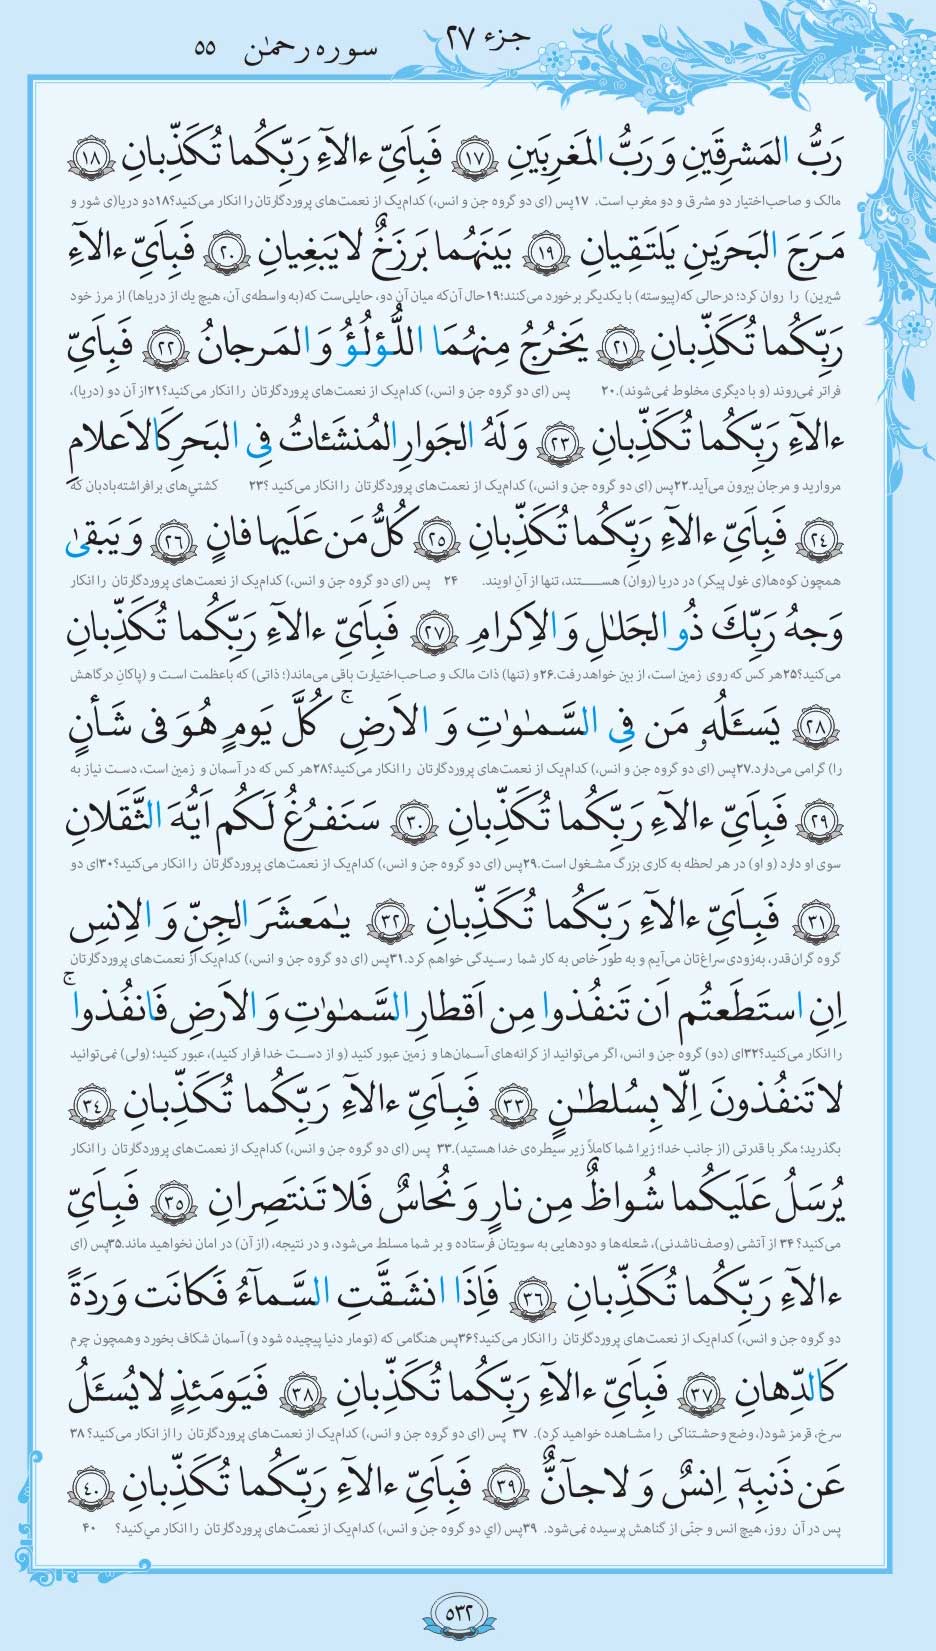 جزء ۲۷ سوره رحمٰن ۵۵
رَبُّ المَشرِقَينِ وَ رَبُّ المَغرِبَينِ ﴿۱۷﴾ فَبِاَيِّ ءالآءِ رَبِّكُما تُكَذِّبانِ ﴿۱۸﴾
مالک و صاحب‌اختیار دو مشرق و دو مغرب است. ۱۷پس (ای دو گروه جن و انس،) کدام‌یک از نعمت‌های پروردگارتان را انکار می‌کنید؟۱۸دو دریا(ی شور و
مَرَجَ البَحرَينِ يَلتَقِيانِ ﴿۱۹﴾ بَينَهُما بَرزَخٌ لايَبغِيانِ ﴿۲۰﴾ فَبِاَيِّ ءالآءِ
شیرین) را روان کرد؛ درحالی که(پیوسته) با یکدیگر برخورد می‌کنند؛۱۹حال آن‌که میان آن دو، حایلی‌ست که(به واسطه‌ی آن، هیچ یك از دریاها) از مرز خود
رَبِّكُما تُكَذِّبانِ ﴿۲۱﴾ يَخرُجُ مِنهُمَا اللُّؤلُؤُ وَ المَرجانُ ﴿۲۲﴾ فَبِاَيِّ
فراتر نمی‌روند (و با دیگری مخلوط نمی‌شوند).۲۰ پس (ای دو گروه جن و انس،) کدام‌یک از نعمت‌های پروردگارتان را انکار می‌کنید؟۲۱از آن دو (دریا)،
ءالآءِ رَبِّكُما تُكَذِّبانِ ﴿۲۳﴾ وَ لَهُ الجَوارِ المُنشَئاتُ فِى البَحرِ كَالاَعلامِ
مروارید و مرجان بیرون می‌آید.۲۲پس (ای دو گروه جن و انس،) کدام‌یک از نعمت‌های پروردگارتان را انکار می‌کنید ؟۲۳ کشتی‌های برافراشته‌بادبان که
﴿۲۴﴾ فَبِاَيِّ ءالآءِ رَبِّكُما تُكَذِّبانِ ﴿۲۵﴾ كُلُّ مَن عَلَيها فانٍ ﴿۲۶﴾ وَ يَبقىٰ
همچون کوه‌ها(ی غول پیکر) در دریا (روان) هستند، تنها از آنِ اویند. ۲۴ پس (ای دو گروه جن و انس،) کدام‌یک از نعمت‌های پروردگارتان را انکار
وَجهُ رَبِّكَ ذُو الجَلـٰلِ وَ الاِكرامِ ﴿۲۷﴾ فَبِاَيِّ ءالآءِ رَبِّكُما تُكَذِّبانِ
می‌کنید؟۲۵هر کس که روی زمین است، از بین خواهد رفت.۲۶و (تنها) ذات مالک و صاحب‌اختیارت باقی می‌ماند(؛ ذاتی) که باعظمت است و (پاکانِ درگاهش
﴿۲۸﴾ يَسـَٔلُهُۥ مَن فِى السَّمـٰوٰتِ وَ الاَرضِۚ كُلَّ يَومٍ هُوَ فى شَأنٍ
را) گرامی می‌دارد.۲۷پس (ای دو گروه جن و انس،) کدام‌یک از نعمت‌های پروردگارتان را انکار می‌کنید؟۲۸هر کس که در آسمان و زمین است، دست نیاز به
﴿۲۹﴾ فَبِاَيِّ ءالآءِ رَبِّكُما تُكَذِّبانِ ﴿۳۰﴾ سَنَفرُغُ لَكُم اَيُّهَ الثَّقَلانِ
سوی او دارد (و او) در هر لحظه به کاری بزرگ مشغول است.۲۹پس (ای دو گروه جن و انس،) کدام‌یک از نعمت‌های پروردگارتان را انکار می‌کنید؟۳۰ای دو
﴿۳۱﴾ فَبِاَيِّ ءالآءِ رَبِّكُما تُكَذِّبانِ ﴿۳۲﴾ يـٰمَعشَرَ الجِنِّ وَ الاِنسِ
گروه گران‌قدر، به‌زودی سراغ‌تان می‌آیم و به طور خاص به کار شما رسیدگی خواهم کرد.۳۱پس (ای دو گروه جن و انس،) کدام‌یک از نعمت‌های پروردگارتان
اِنِ استَطَعتُم اَن تَنفُذوا مِن اَقطارِ السَّمـٰوٰتِ وَ الاَرضِ فَانفُذواۚ
را انکار می‌کنید؟۳۲ای (دو) گروه جن و انس، اگر می‌توانید از کرانه‌های آسمان‌ها و زمین عبور کنید (و از دست خدا فرار کنید)، عبور کنید؛ (ولی) نمی‌توانید
لا تَنفُذونَ اِلّا بِسُلطـٰنٍ ﴿۳۳﴾ فَبِاَيِّ ءالآءِ رَبِّكُما تُكَذِّبانِ ﴿۳۴﴾
بگذرید؛ مگر با قدرتی (از جانب خدا؛ زیرا شما کاملاً زیر سیطره‌ی خدا هستید).۳۳ پس (ای دو گروه جن و انس،) کدام‌یک از نعمت‌های پروردگارتان را انکار
يُرسَلُ عَلَيكُما شُواظٌ مِن نارٍ وَ نُحاسٌ فَلا تَنتَصِرانِ ﴿۳۵﴾ فَبِاَيِّ
می‌کنید؟ ۳۴ از آتشی (وصف‌ناشدنی)، شعله‌ها و دودهایی به سویتان فرستاده و بر شما مسلط می‌شود، و در نتیجه، (از آن) در امان نخواهید ماند.۳۵پس (ای
ءالآءِ رَبِّكُما تُكَذِّبانِ ﴿۳۶﴾ فَاِذَا انشَقَّتِ السَّمآءُ فَكانَت وَردَةً
دو گروه جن و انس،) کدام‌یک از نعمت‌های پروردگارتان را انکار می‌کنید؟۳۶پس هنگامی که (تومار دنیا پیچیده شود و) آسمان شکاف بخورد و همچون چرم
كَالدِّهانِ ﴿۳۷﴾ فَبِاَيِّ ءالآءِ رَبِّكُما تُكَذِّبانِ ﴿۳۸﴾ فَيَومَئِذٍ لا يُسـَٔلُ
سرخ، قرمز شود(، وضع وحشتناکی را مشاهده خواهید کرد). ۳۷ پس (ای دو گروه جن و انس،) کدام‌یک از نعمت‌های پروردگارتان را از انکار می‌کنید؟ ۳۸
عَن ذَنبِهٓ اِنسٌ وَ لا جآنٌّ ﴿۳۹﴾ فَبِاَيِّ ءالآءِ رَبِّكُما تُكَذِّبانِ ﴿۴۰﴾
پس در آن روز، هیچ انس و جنّی از گناهش پرسیده نمی‌شود. ۳۹پس (اي دو گروه جن و انس،) کدام‌یک از نعمت‌های پروردگارتان را انکار مي‌کنید؟ ۴۰
۵۳۲